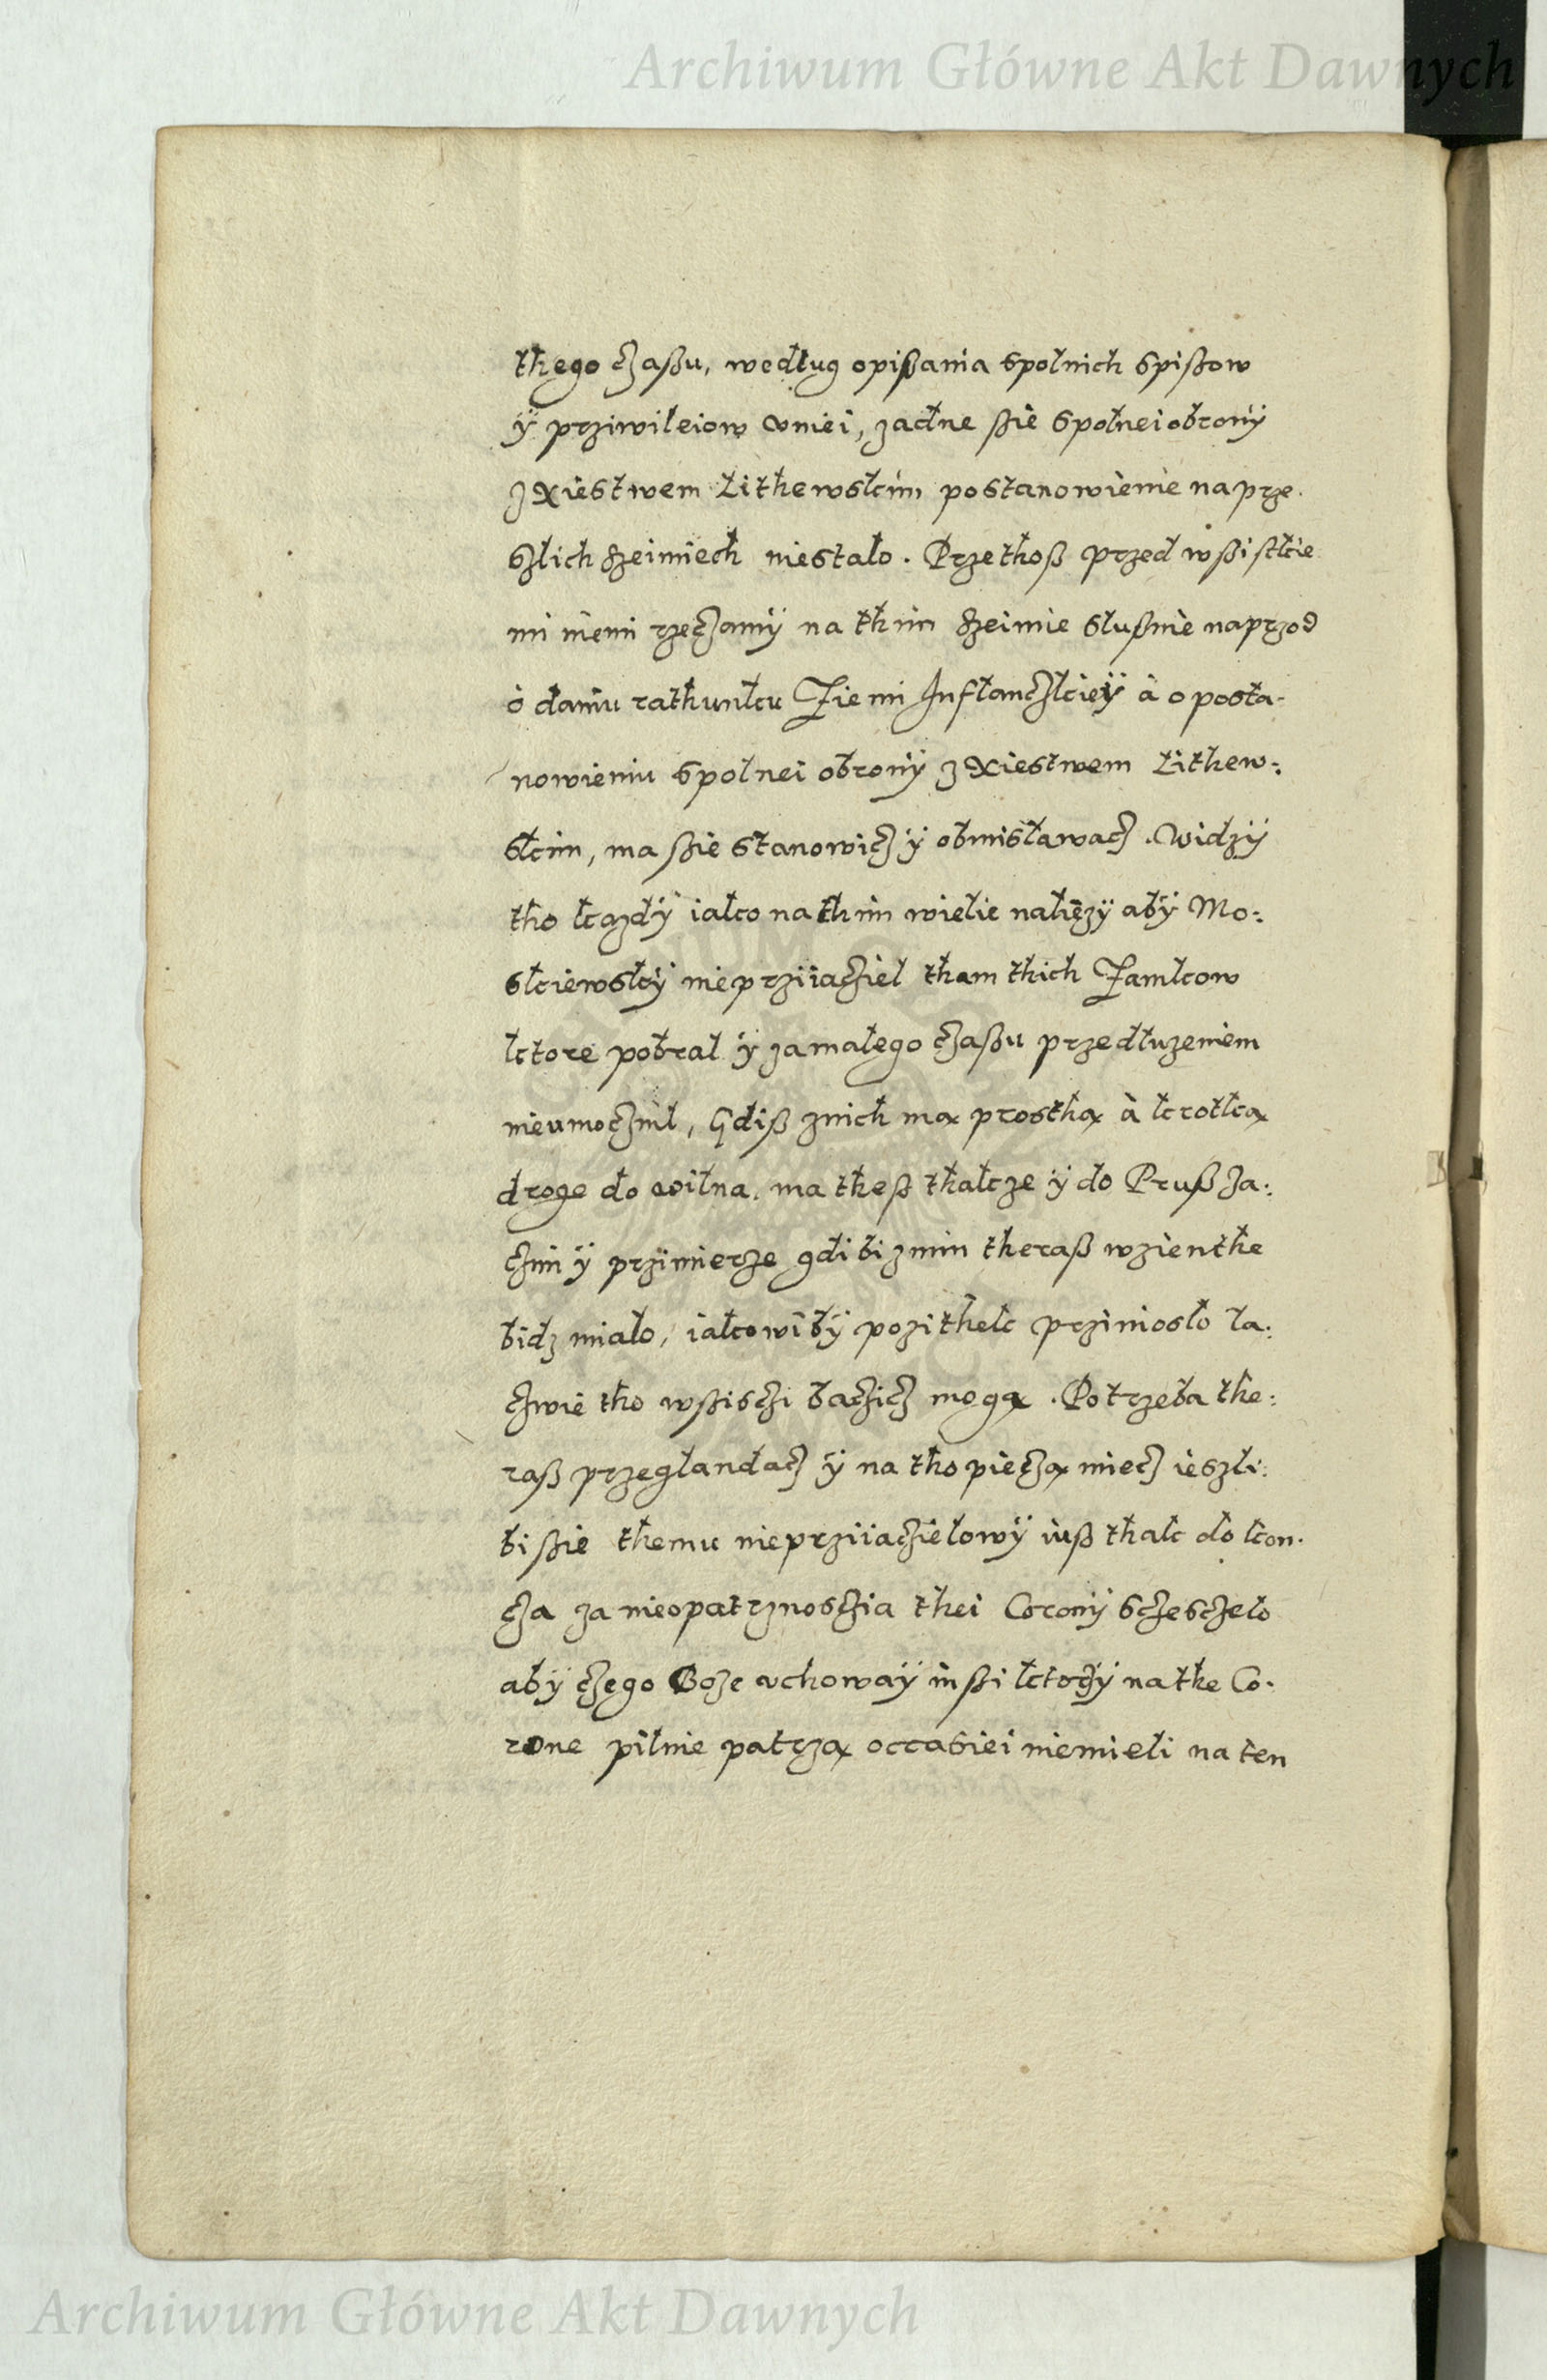 Archiwum Główne Akt Dawnych
thego czaßu, według opißania spolnich spißow
ÿ prziwileiow vniei, zadne ßie spolnei obronÿ
z Xiestwem Lithewskim postanowienie na prze
szlich szeimiech niestało. Przethoß przed wßistkie
mi niemi rzeczamÿ na thim szeimie słußnie naprzod
o daniu rathunku Ziemi Inflanczkieÿ à o posta-
nowieniu spolnei obronÿ z Xiestwem Lithew:
skim, ma ßie stanowicz ÿ obmisławacz. Widzÿ
tho kazdÿ iako na thim wielie nalięzÿ abÿ Mo:
skiewskÿ nieprziiacziel tham thich Zamkow
ktore pobral ÿ za małego czaßu przedłuzeniem
nieumocznił, Gdiß znich ma prostha à krotka
droge do wilna, ma theß thakze ÿ do Pruß Za:
czim ÿ przimierze gdi bi z nim theraß wzienthe
bidz miało, iakowi bÿ pozithek prziniosło ła:
czwie tho wßisczi baczicz moga. Potrzeba the:
raß przeglandacz ÿ na tho piecza miecz ieszli:
bi ßie themu nieprziiacziełowÿ iuß thak do kon:
cza za nieopatrznosczia thei Coronÿ sczesczeło
abÿ czego Boze vchowaÿ inßi ktorzÿ na the Co:
rone pilnie patrza occasiei niemieli na ten
Archiwum Główne Akt Dawnych